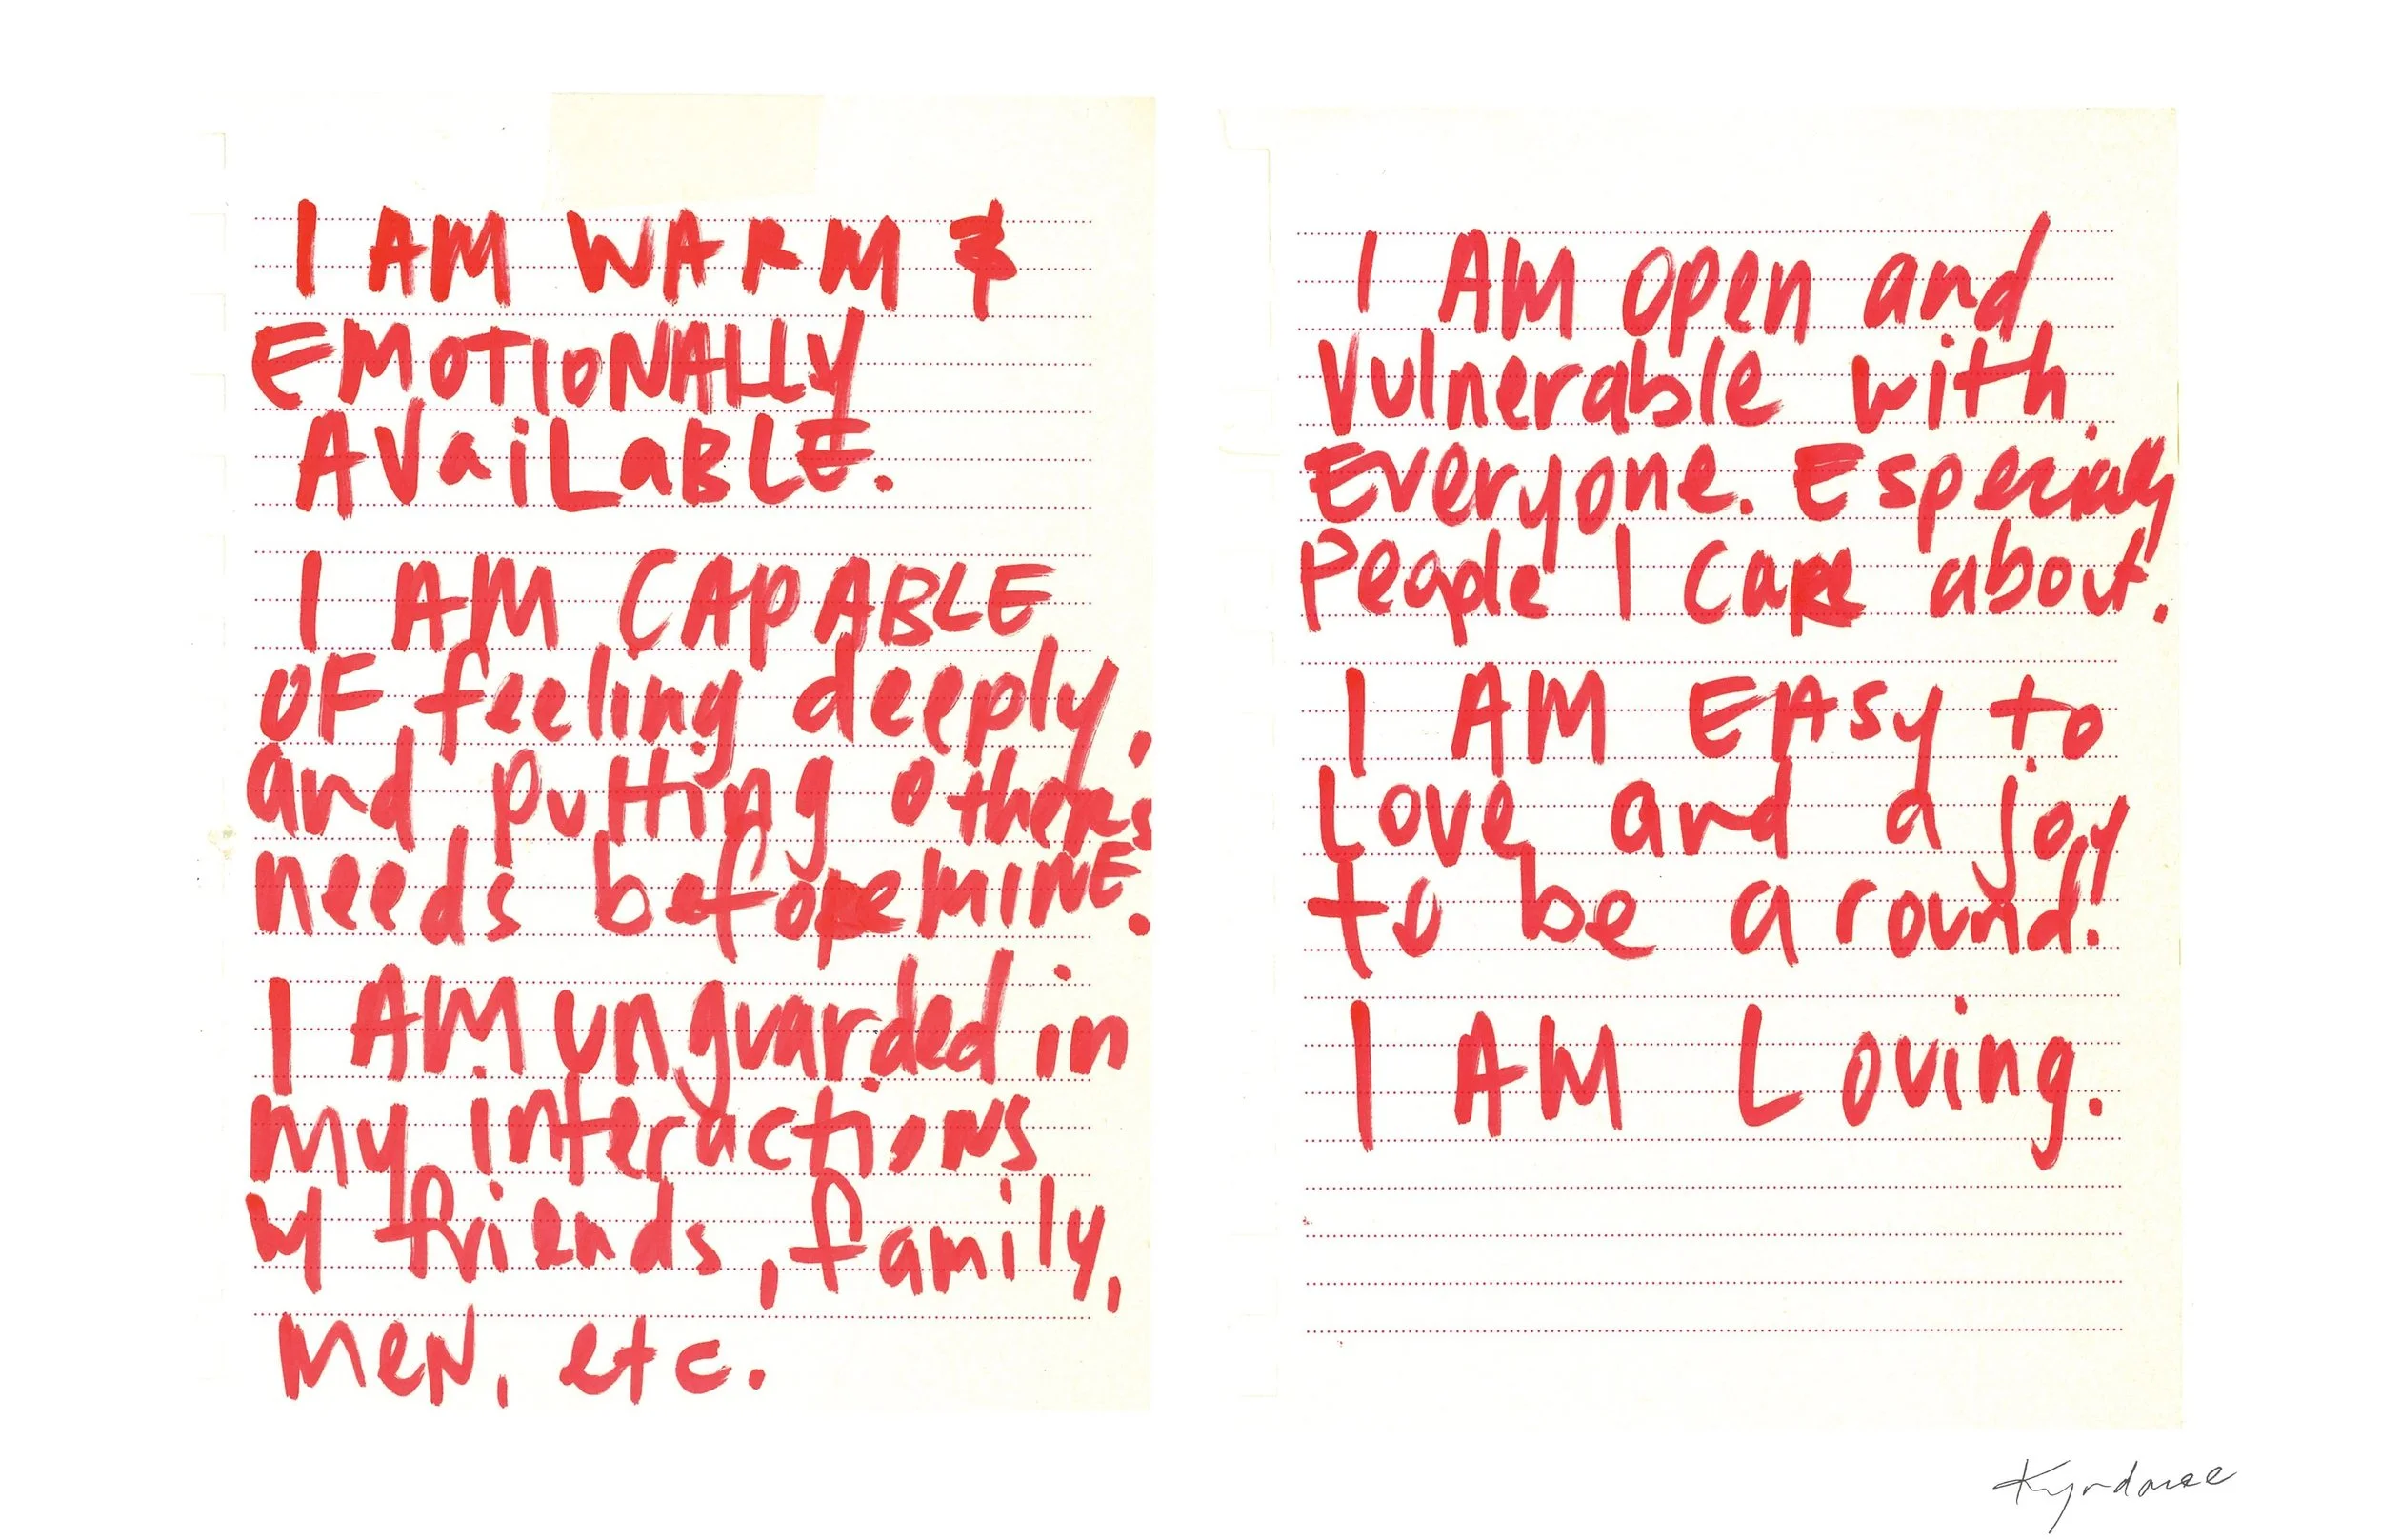 I AM WARM &
EMOTIONALLY
AVaiLaBLE.
I AM CAPABLE
OF feeling deeply,
and putting others
needs before MINE.
I AM unguarded in
my interactions
w/ friends, family,
MeN, etc.
I AM open and
Vulnerable with
Everyone. Especially
People I Care about.
I AM EAsy to
Love and a joy
to be around!
I AM Loving.